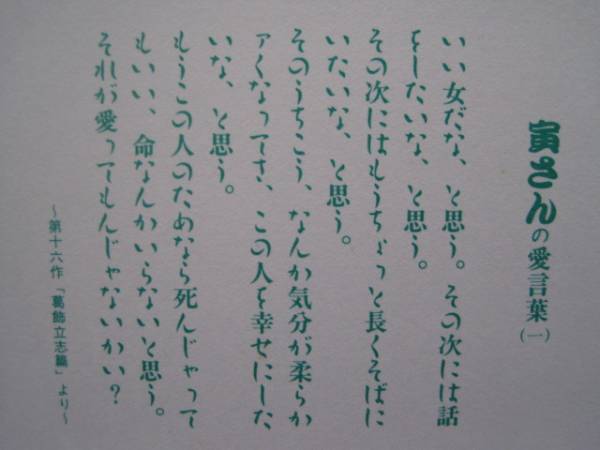 寅さんの愛言葉(一)
いい女だな、と思う。その次には話
をしたいな、と思う。
その次にはもうちょっと長くそばに
いたいな、と思う。
そのうちこう、なんか気分が柔らか
ァくなってさ、この人を幸せにした
いな、と思う。
もうこの人のためなら死んじゃって
もいい、命なんかいらないと思う。
それが愛ってもんじゃないかい?
~第十六作「葛飾立志篇」より~